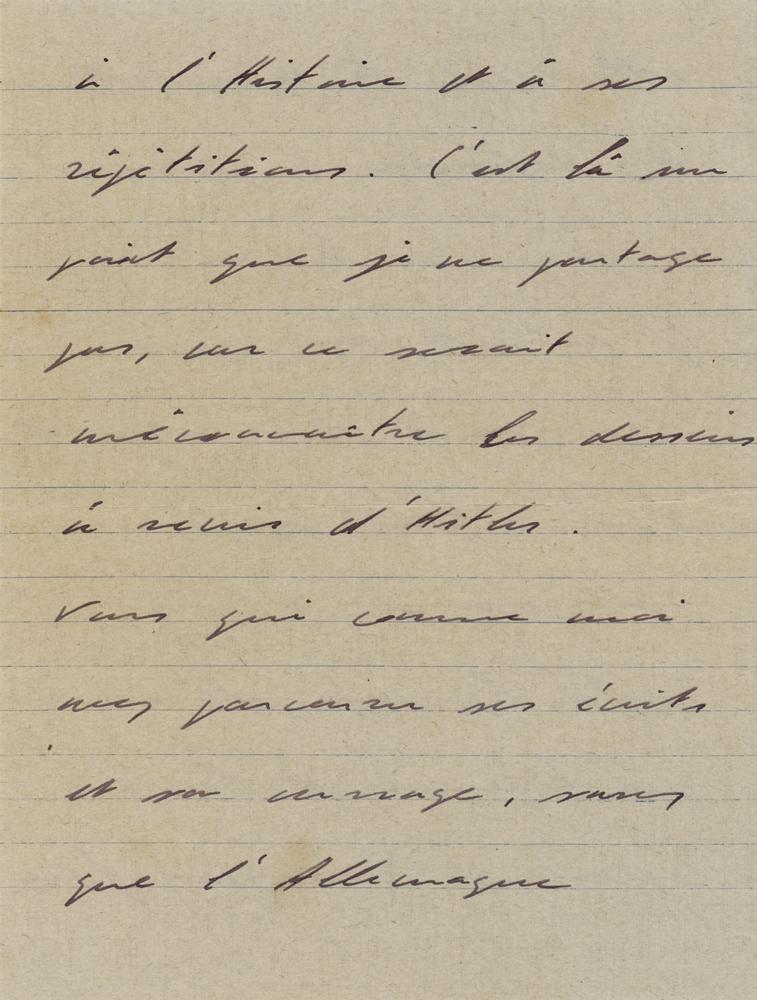 à l'Histoire et à ses
répétitions. C'est là un
point que je ne partage
pas, car ce serait
méconnaître les desseins
à venir d'Hitler.
Vous qui comme moi
avez parcouru ses écrits
et son ouvrage, savez
que l'Allemagne